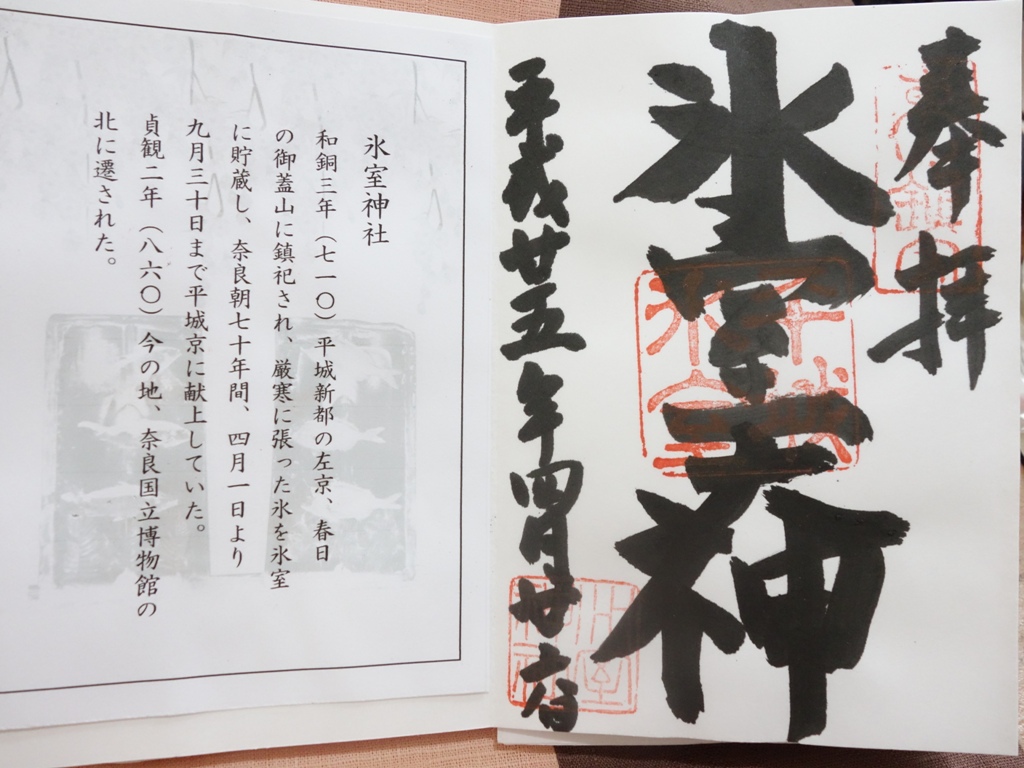 奉拝
氷室大神
平城
氷室
平成廿五年四月廿六日
氷室
神社
氷室神社
和銅三年（七一〇）平城新都の左京、春日
の御蓋山に鎮祀され、厳寒に張った氷を氷室
に貯蔵し、奈良朝七十年間、四月一日より
九月三十日まで平城京に献上していた。
貞観二年（八六〇）今の地、奈良国立博物館の
北に遷された。